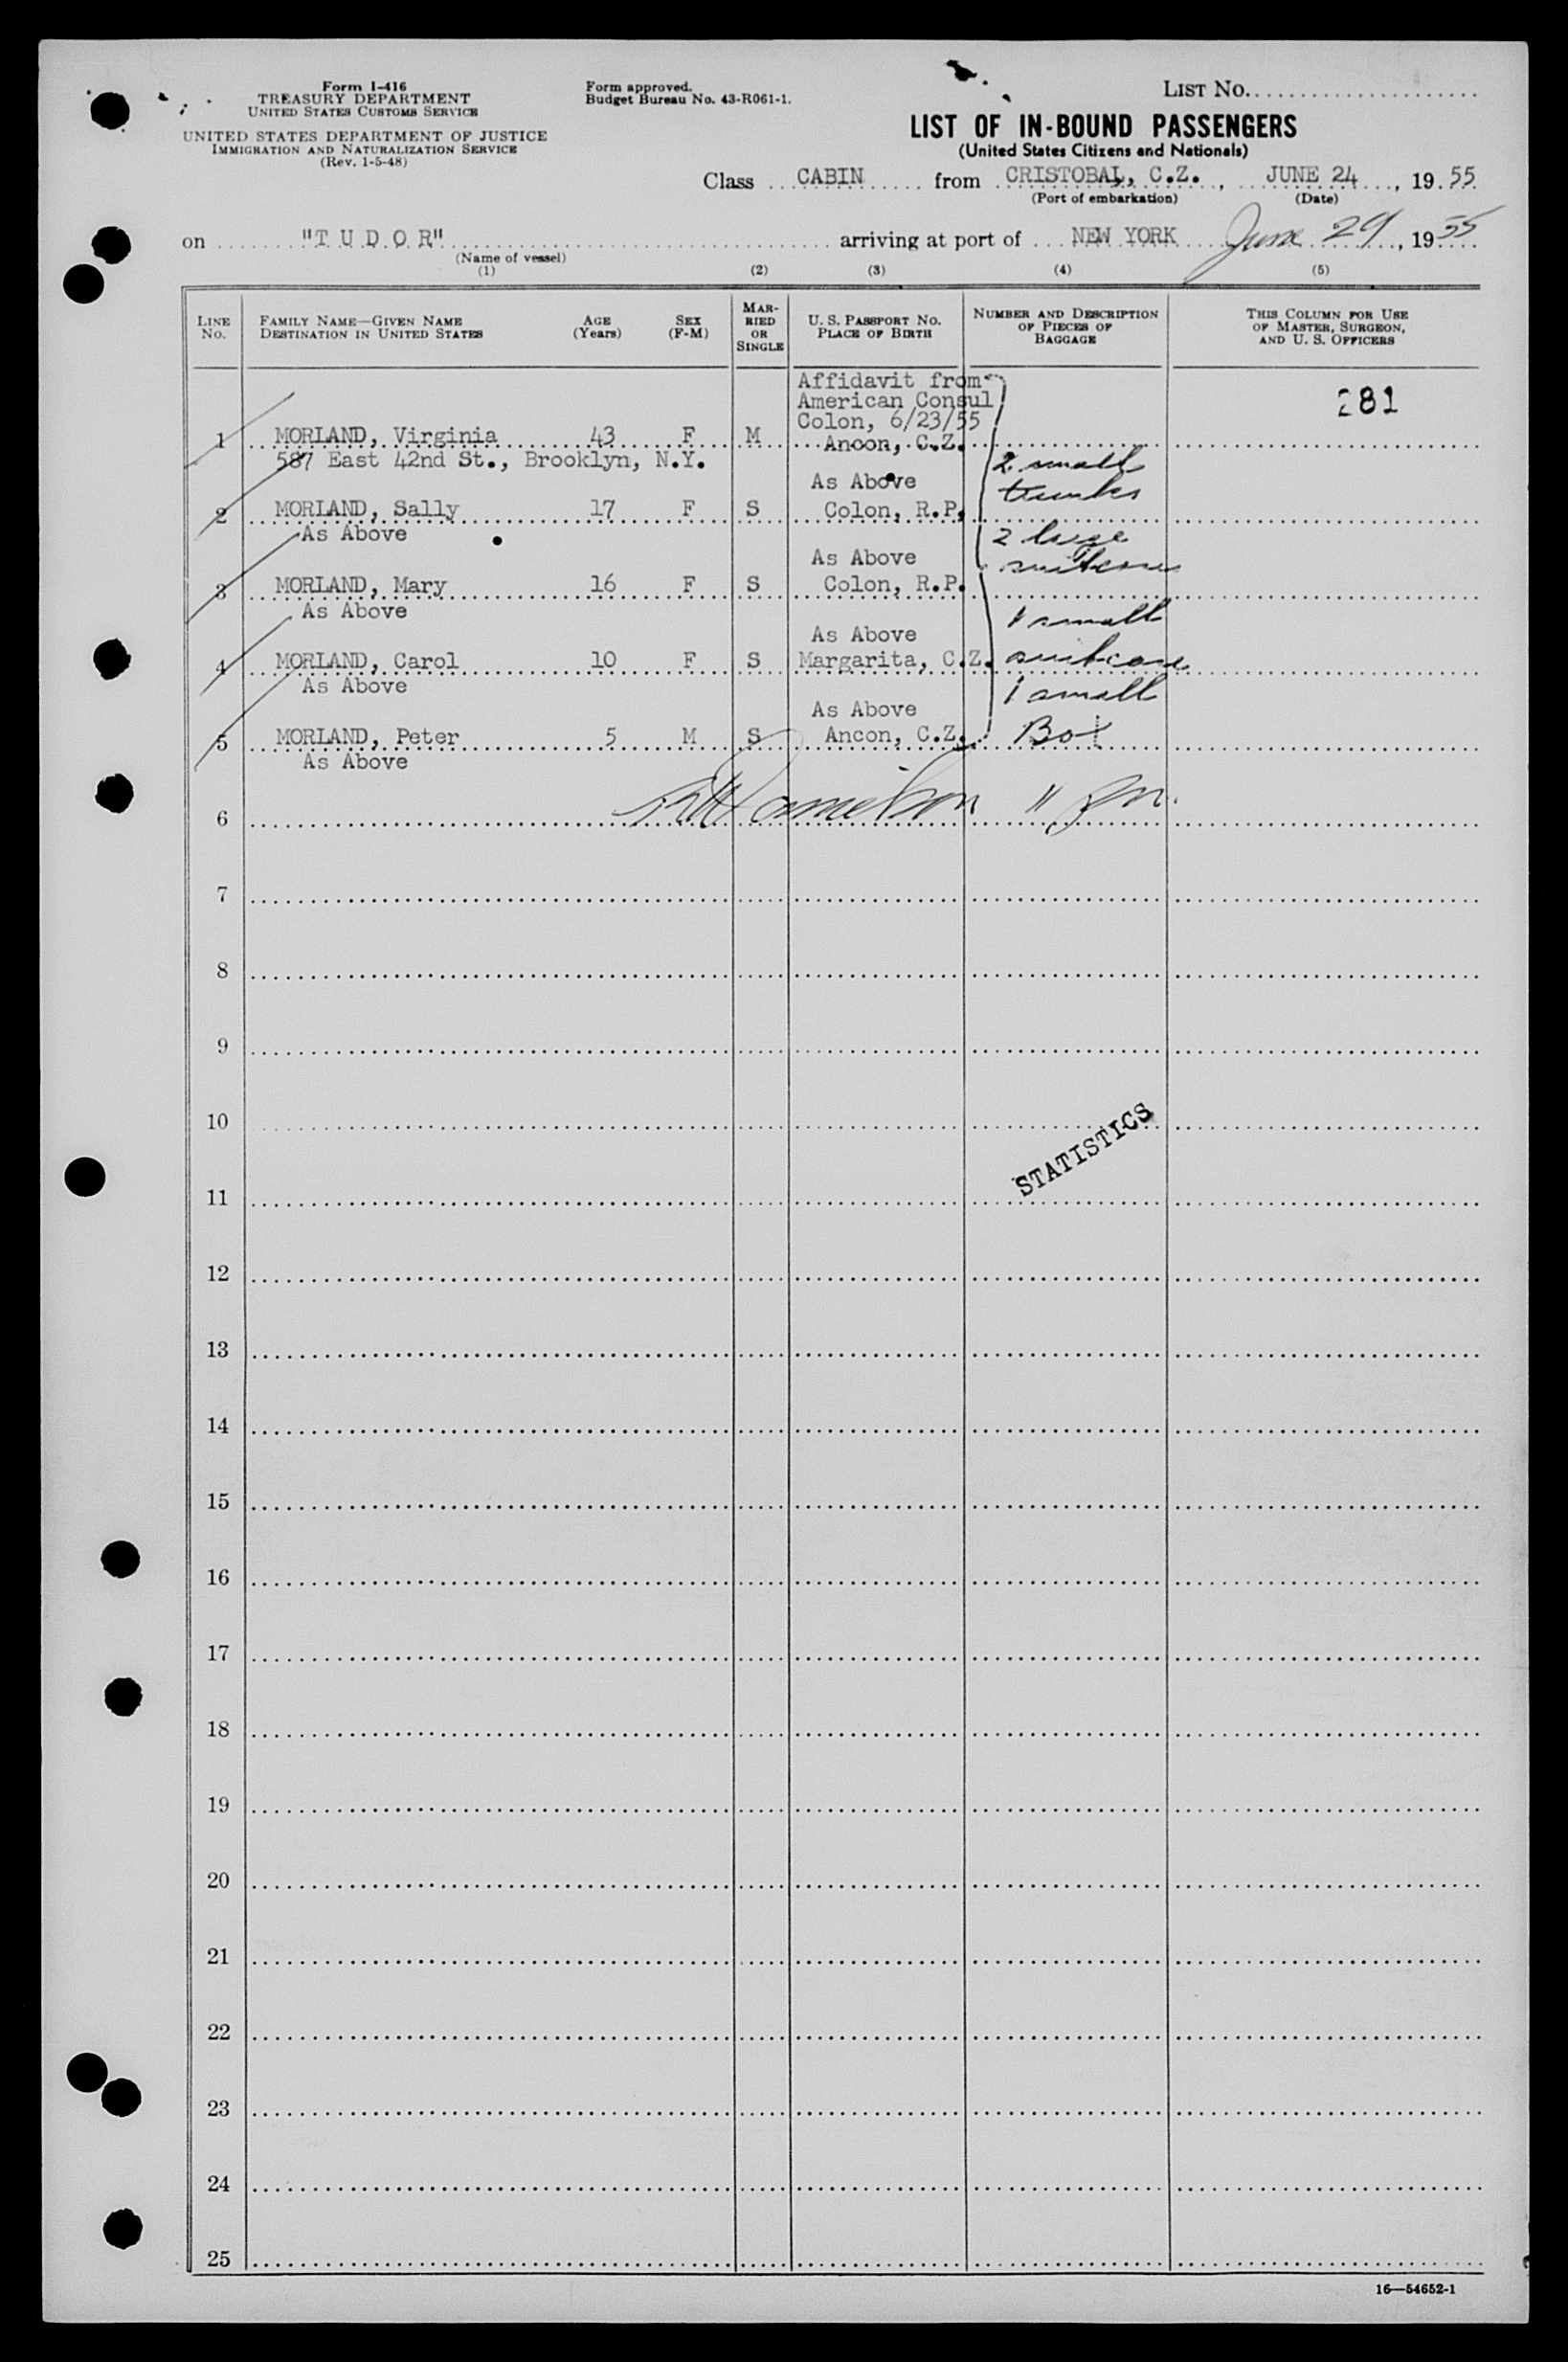 Form I-416
TREASURY DEPARTMENT
UNITED STATES CUSTOMS SERVICE
UNITED STATES DEPARTMENT OF JUSTICE
IMMIGRATION AND NATURALIZATION SERVICE
(Rev. 1-5-48)
Form approved.
Budget Bureau No. 43-R061-1.
LIST No.
LIST OF IN-BOUND PASSENGERS
(United States Citizens and Nationals)
Class CABIN from CRISTOBAL, C.Z., JUNE 24, 1955
(Port of embarkation) (Date)
on "T U D O R" arriving at port of NEW YORK June 29, 1955
(Name of vessel)
(1) (2) (3) (4) (5)
LINE No. FAMILY NAME—GIVEN NAME DESTINATION IN UNITED STATES AGE (Years) SEX (F-M) MARRIED OR SINGLE U. S. PASSPORT No. PLACE OF BIRTH NUMBER AND DESCRIPTION OF PIECES OF BAGGAGE THIS COLUMN FOR USE OF MASTER, SURGEON, AND U. S. OFFICERS
Affidavit from
American Consul
Colon, 6/23/55
281
1 MORLAND, Virginia 43 F M Ancon, C.Z.
587 East 42nd St., Brooklyn, N.Y. 2 small
As Above trunks
2 MORLAND, Sally 17 F S Colon, R.P.
As Above 2 large
As Above suitcases
3 MORLAND, Mary 16 F S Colon, R.P.
As Above 1 small
As Above
4 MORLAND, Carol 10 F S Margarita, C.Z. suitcase
As Above 1 small
As Above
5 MORLAND, Peter 5 M S Ancon, C.Z. Box
As Above
6
7
8
9
10
STATISTICS
11
12
13
14
15
16
17
18
19
20
21
22
23
24
25
16—54652-1